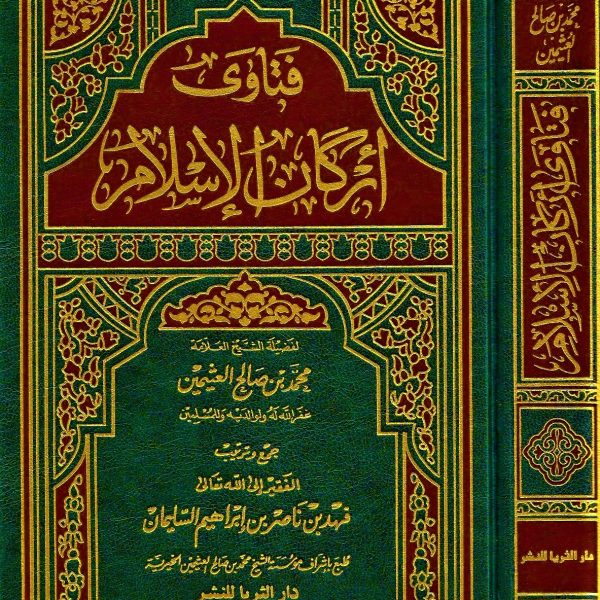 فتاوى
أركان الإسلام
لفضيلة الشيخ العلامة
محمد بن صالح العثيمين
غفر الله له ولوالديه وللمسلمين
جمع وترتيب
الفقير إلى الله تعالى
فهد بن ناصر بن إبراهيم السليمان
طبع بإشراف مؤسسة الشيخ محمد بن صالح العثيمين الخيرية
دار الثريا للنشر
محمد بن صالح
العثيمين
فتاوى أركان الإسلام
دار الثريا للنشر